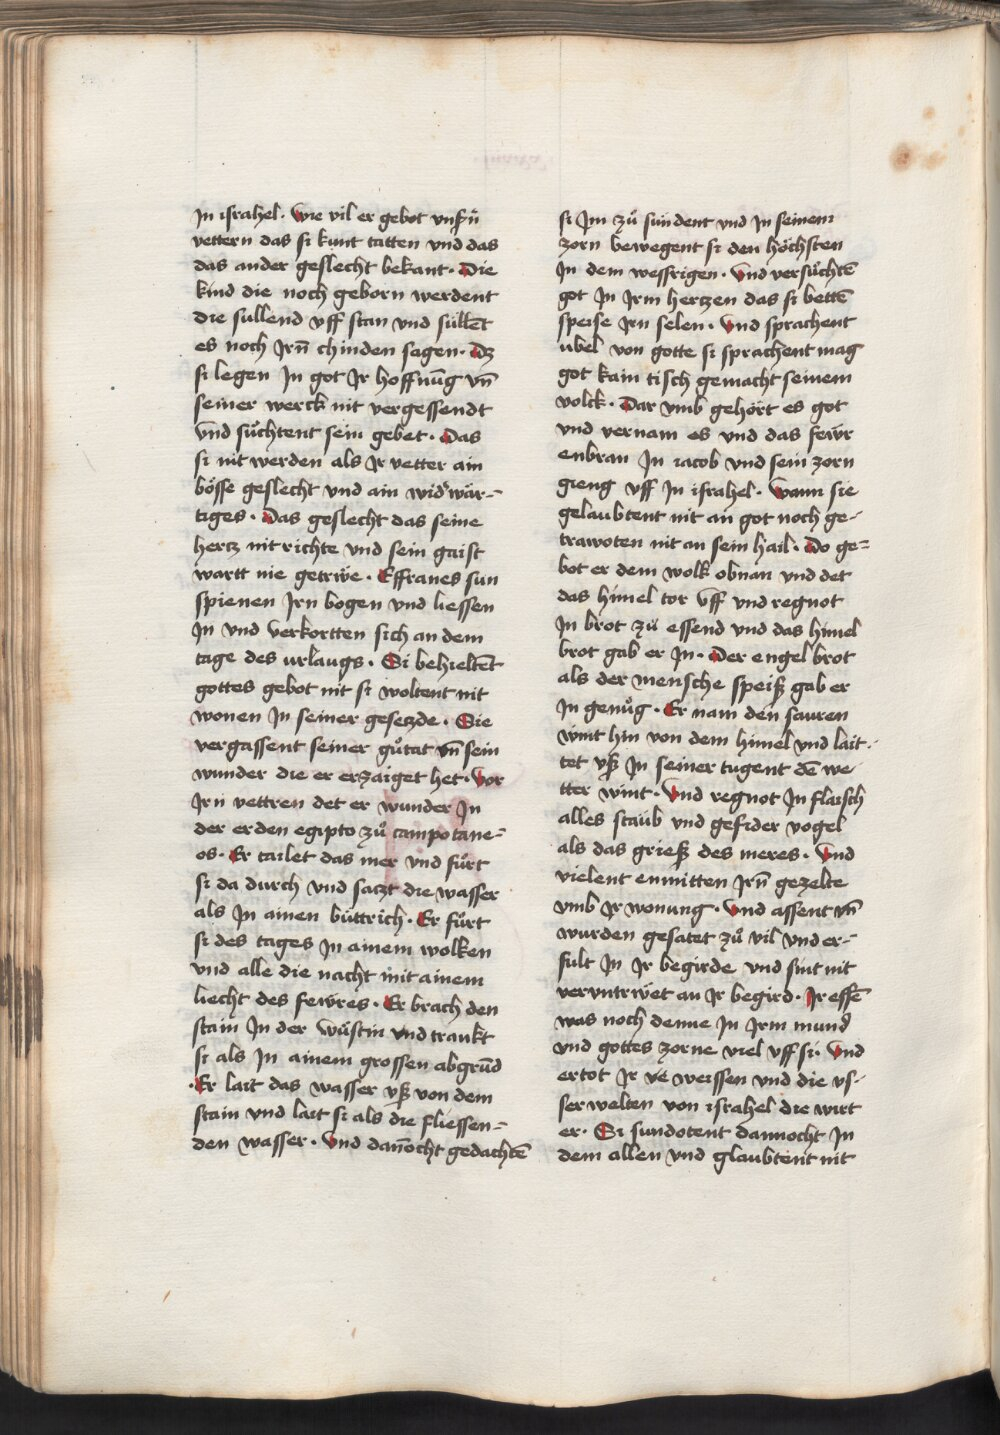 Jn israhel · Wie vil er gebot vnsͤrn̄
vettern das si kunt tatten vnd das
das ander geslecht bekant · Die
kind die noch geborn werdent
die sullend vff stan vnd sullēt
es noch Jrn̄ chinden sagen · Dz
si legen Jn got Jr hoffnūg vn̄
seiner werck nit vergessendt
vnd suͦchtent sein gebet · Das
si nit werden als Jr vetter ain
bösse geslecht vnd ain widˀwär-
tiges · Das geslecht das seine
hertz nit richte vnd sein gaist
wartt nie getrẅe · Effranes sun
spienen Jrn bogen vnd liessen
Jn vnd verkortten sich an dem
tage des vrlaugs · Si behieltēt
gottes gebot nit si woltent nit
wonen Jn seiner gesetzde · Sie
vergassent seiner guͦtat vn̄ sein
wunder die er erzaiget het · Vor
Jrn vettren det er wunder Jn
der erden egipto zuͦ campo tane-
os · Er tailet das mer vnd fuͦrt
si da durch vnd satzt die wasser
als Jn ainen büttrich · Er fuͦrt
si des tages Jn ainem wolken
vnd alle die nacht mit ainem
liecht des fewres · Er brach den
stain Jn der wuͦstin vnd trankt
si als Jn ainem grossen abgrūd
· Er lait das wasser vß von dem
stain vnd lait si als die fliessen-
den wasser · Vnd dan̄ocht gedachtē
si Jm zuͦ sundent vnd Jn seinem
zorn bewegent si den höchsten
Jn dem wessrigen · Vnd versuͦchtē
got Jn Jrm hertzen das si bettē
speise Jrn selen · Vnd sprachent
übel von gotte si sprachent mag
got kain tisch gemacht seinem
volck · Dar vmb gehört es got
vnd vernam es vnd das fewr
enbran Jn iacob vnd sein zorn
gieng vff Jn israhel · Wann sie
gelaubtent nit an got noch ge-
trawoten nit an sein hail · Do ge-
bot er dem wolk obnan vnd det
das himel tor vff vnd regnot
Jn brot zuͦ essend vnd das himel
brot gab er Jn · Der engel brot
als der mensche speiß gab er
Jn genuͦg · Er nam den sauren
wint hin von dem himel vnd lait-
tet vß Jn seiner tugent dē we-
tter wint · Vnd regnot Jn flaisch
alles staub vnd gefider vogel
als das grieß des meres · Vnd
vielent enmitten Jrn̄ gezelte
vmb Jr wonung · Vnd assent vn̄
wurden gesatet zuͦ vil vnd er-
fult Jn Jr begirde vnd sint nit
veruntrẅet an Jr begird · Jr essē
was noch denne Jn Jrm mund
vnd gottes zorne viel vff si · Vnd
ertot Jr ve weissen vnd die vs-
ser welten von israhel die wirt
er · Si sundotent dannocht Jn
dem allen vnd glaubtent nit